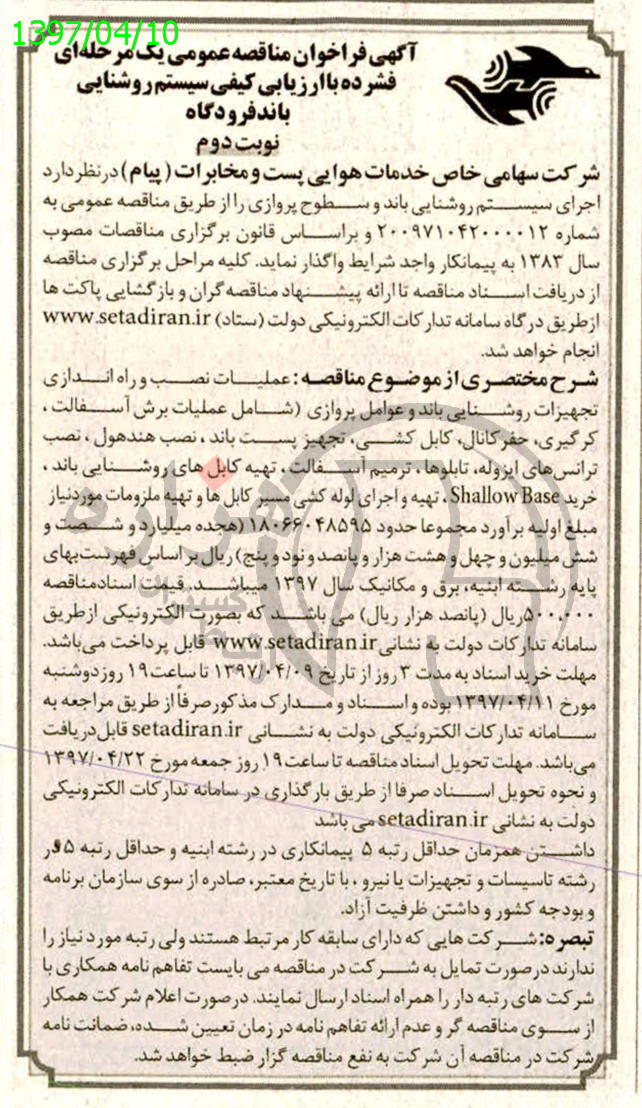 1397/04/10
آگهی فراخوان مناقصه عمومی یک مرحله‌ای
فشرده با ارزیابی کیفی سیستم روشنایی
باند فرودگاه
نوبت دوم
شرکت سهامی خاص خدمات هوایی پست و مخابرات (پیام) در نظر دارد
اجرای سیستم روشنایی باند و سطوح پروازی را از طریق مناقصه عمومی به
شماره ۲۰۰۹۷۱۰۴۲۰۰۰۰۱۲ و براساس قانون برگزاری مناقصات مصوب
سال ۱۳۸۳ به پیمانکار واجد شرایط واگذار نماید. کلیه مراحل برگزاری مناقصه
از دریافت اسناد مناقصه تا ارائه پیشنهاد مناقصه گران و بازگشایی پاکت ها
ازطریق درگاه سامانه تدارکات الکترونیکی دولت (ستاد) www.setadiran.ir
انجام خواهد شد.
شرح مختصری از موضوع مناقصه: عملیات نصب و راه اندازی
تجهیزات روشنایی باند و عوامل پروازی (شامل عملیات برش آسفالت،
کرگیری، حفر کانال، کابل کشی، تجهیز پست باند، نصب هندهول، نصب
ترانس‌های ایزوله، تابلوها، ترمیم آسفالت، تهیه کابل های روشنایی باند،
خرید Shallow Base، تهیه و اجرای لوله کشی مسیر کابل ها و تهیه ملزومات موردنیاز
مبلغ اولیه برآورد مجموعا حدود ۱۸۰۶۶۰۴۸۵۹۵ (هجده میلیارد و شصت و
شش میلیون و چهل و هشت هزار و پانصد و نود و پنج) ریال بر اساس فهرست‌بهای
پایه رشته ابنیه، برق و مکانیک سال ۱۳۹۷ میباشد. قیمت اسناد مناقصه
۵۰۰,۰۰۰ریال (پانصد هزار ریال) می باشد که بصورت الکترونیکی ازطریق
سامانه تدارکات دولت به نشانی www.setadiran.ir قابل پرداخت می‌باشد.
مهلت خرید اسناد به مدت ۳ روز از تاریخ ۱۳۹۷/۰۴/۰۹ تا ساعت ۱۹ روز دوشنبه
مورخ ۱۳۹۷/۰۴/۱۱ بوده و اسناد و مدارک مذکور صرفاً از طریق مراجعه به
سامانه تدارکات الکترونیکی دولت به نشانی setadiran.ir قابل دریافت
می‌باشد. مهلت تحویل اسناد مناقصه تا ساعت ۱۹ روز جمعه مورخ ۱۳۹۷/۰۴/۲۲
و نحوه تحویل اسناد صرفا از طریق بارگذاری در سامانه تدارکات الکترونیکی
دولت به نشانی setadiran.ir می باشد
داشتن همزمان حداقل رتبه ۵ پیمانکاری در رشته ابنیه و حداقل رتبه ۵ در
رشته تاسیسات و تجهیزات یا نیرو، با تاریخ معتبر، صادره از سوی سازمان برنامه
و بودجه کشور و داشتن ظرفیت آزاد.
تبصره: شرکت هایی که دارای سابقه کار مرتبط هستند ولی رتبه مورد نیاز را
ندارند درصورت تمایل به شرکت در مناقصه می بایست تفاهم نامه همکاری با
شرکت های رتبه دار را همراه اسناد ارسال نمایند. درصورت اعلام شرکت همکار
از سوی مناقصه گر و عدم ارائه تفاهم نامه در زمان تعیین شده، ضمانت نامه
شرکت در مناقصه آن شرکت به نفع مناقصه گزار ضبط خواهد شد.